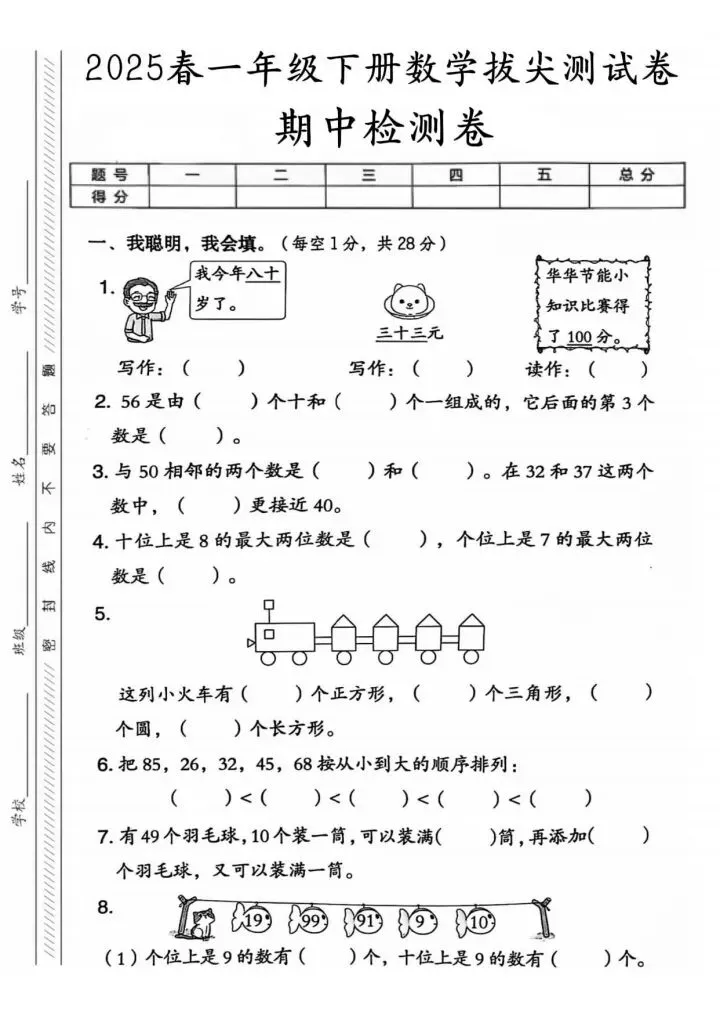 2025春一年级下册数学拔尖测试卷
期中检测卷
题号 一 二 三 四 五 总分
得分
学号
姓名
班级
学校
密封线内不要答题
一、我聪明，我会填。（每空1分，共28分）
1. 我今年八十
岁了。
三十三元
华华节能小
知识比赛得
了100分。
写作：（ ） 写作：（ ） 读作：（ ）
2. 56是由（ ）个十和（ ）个一组成的，它后面的第3个
数是（ ）。
3. 与50相邻的两个数是（ ）和（ ）。在32和37这两个
数中，（ ）更接近40。
4. 十位上是8的最大两位数是（ ），个位上是7的最大两位
数是（ ）。
5.
这列小火车有（ ）个正方形，（ ）个三角形，（ ）
个圆，（ ）个长方形。
6. 把85，26，32，45，68按从小到大的顺序排列：
（ ）<（ ）<（ ）<（ ）<（ ）
7. 有49个羽毛球，10个装一筒，可以装满（ ）筒，再添加（ ）
个羽毛球，又可以装满一筒。
8. 19 99 91 9 10
（1）个位上是9的数有（ ）个，十位上是9的数有（ ）个。